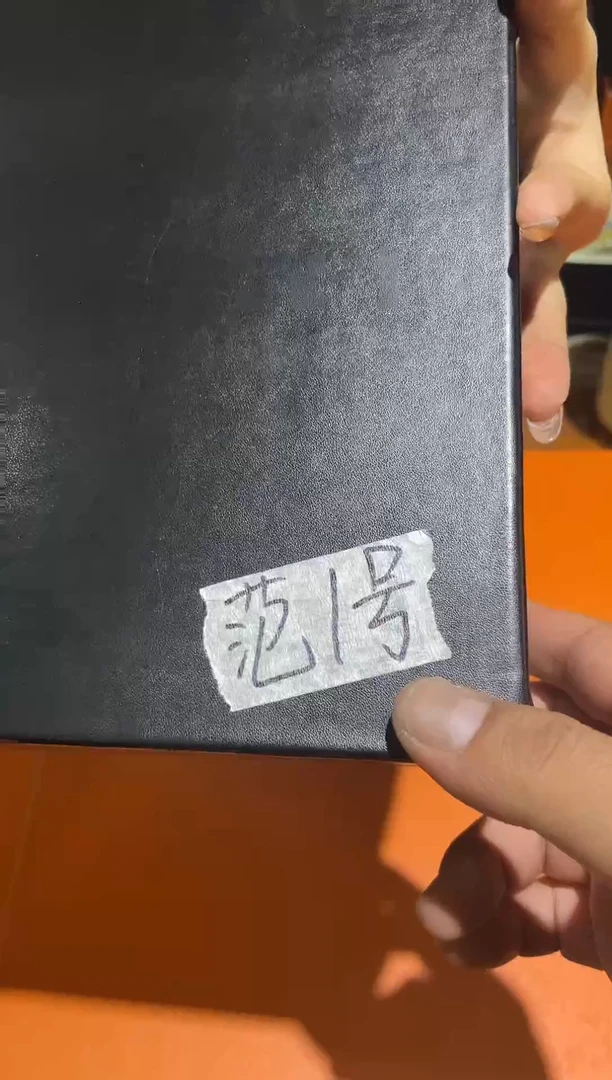 范1号